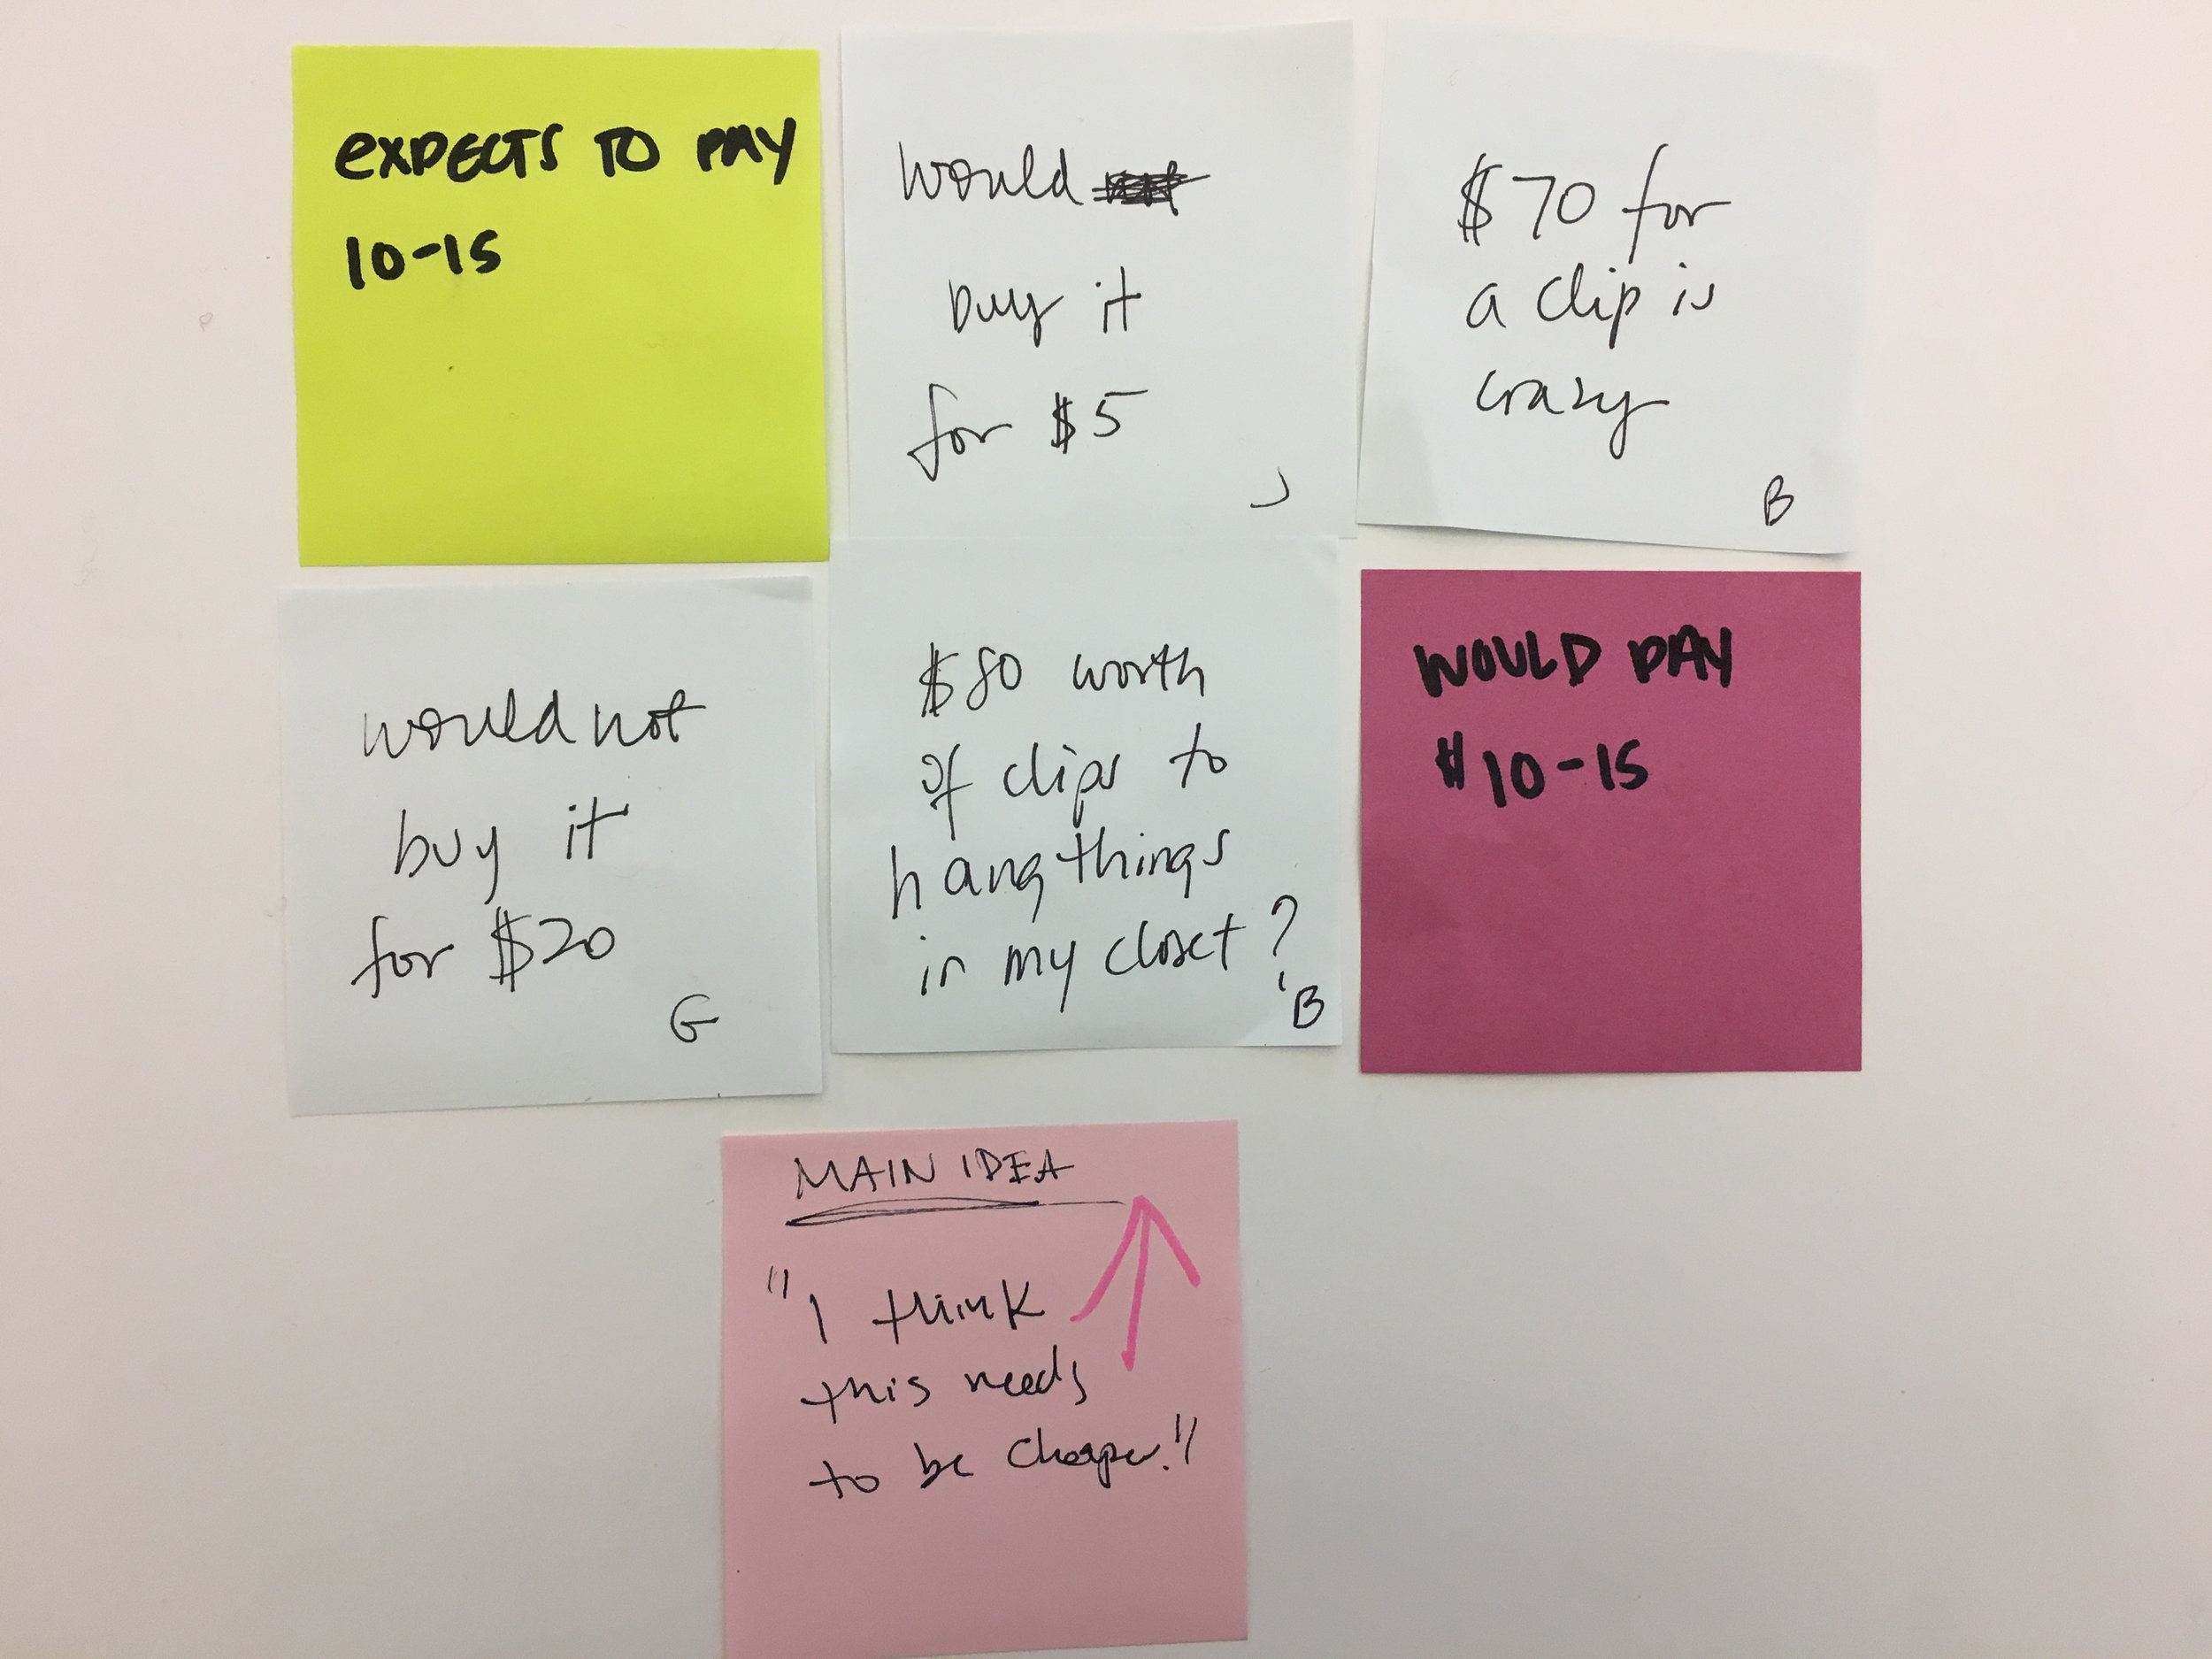 EXPECTS TO PAY
10-15
would
buy it
for $5
J
$70 for
a clip is
crazy
B
would not
buy it
for $20
G
$80 worth
of clips to
hang things
in my closet?
B
WOULD PAY
$10-15
MAIN IDEA
"I think
this needs
to be cheaper!"